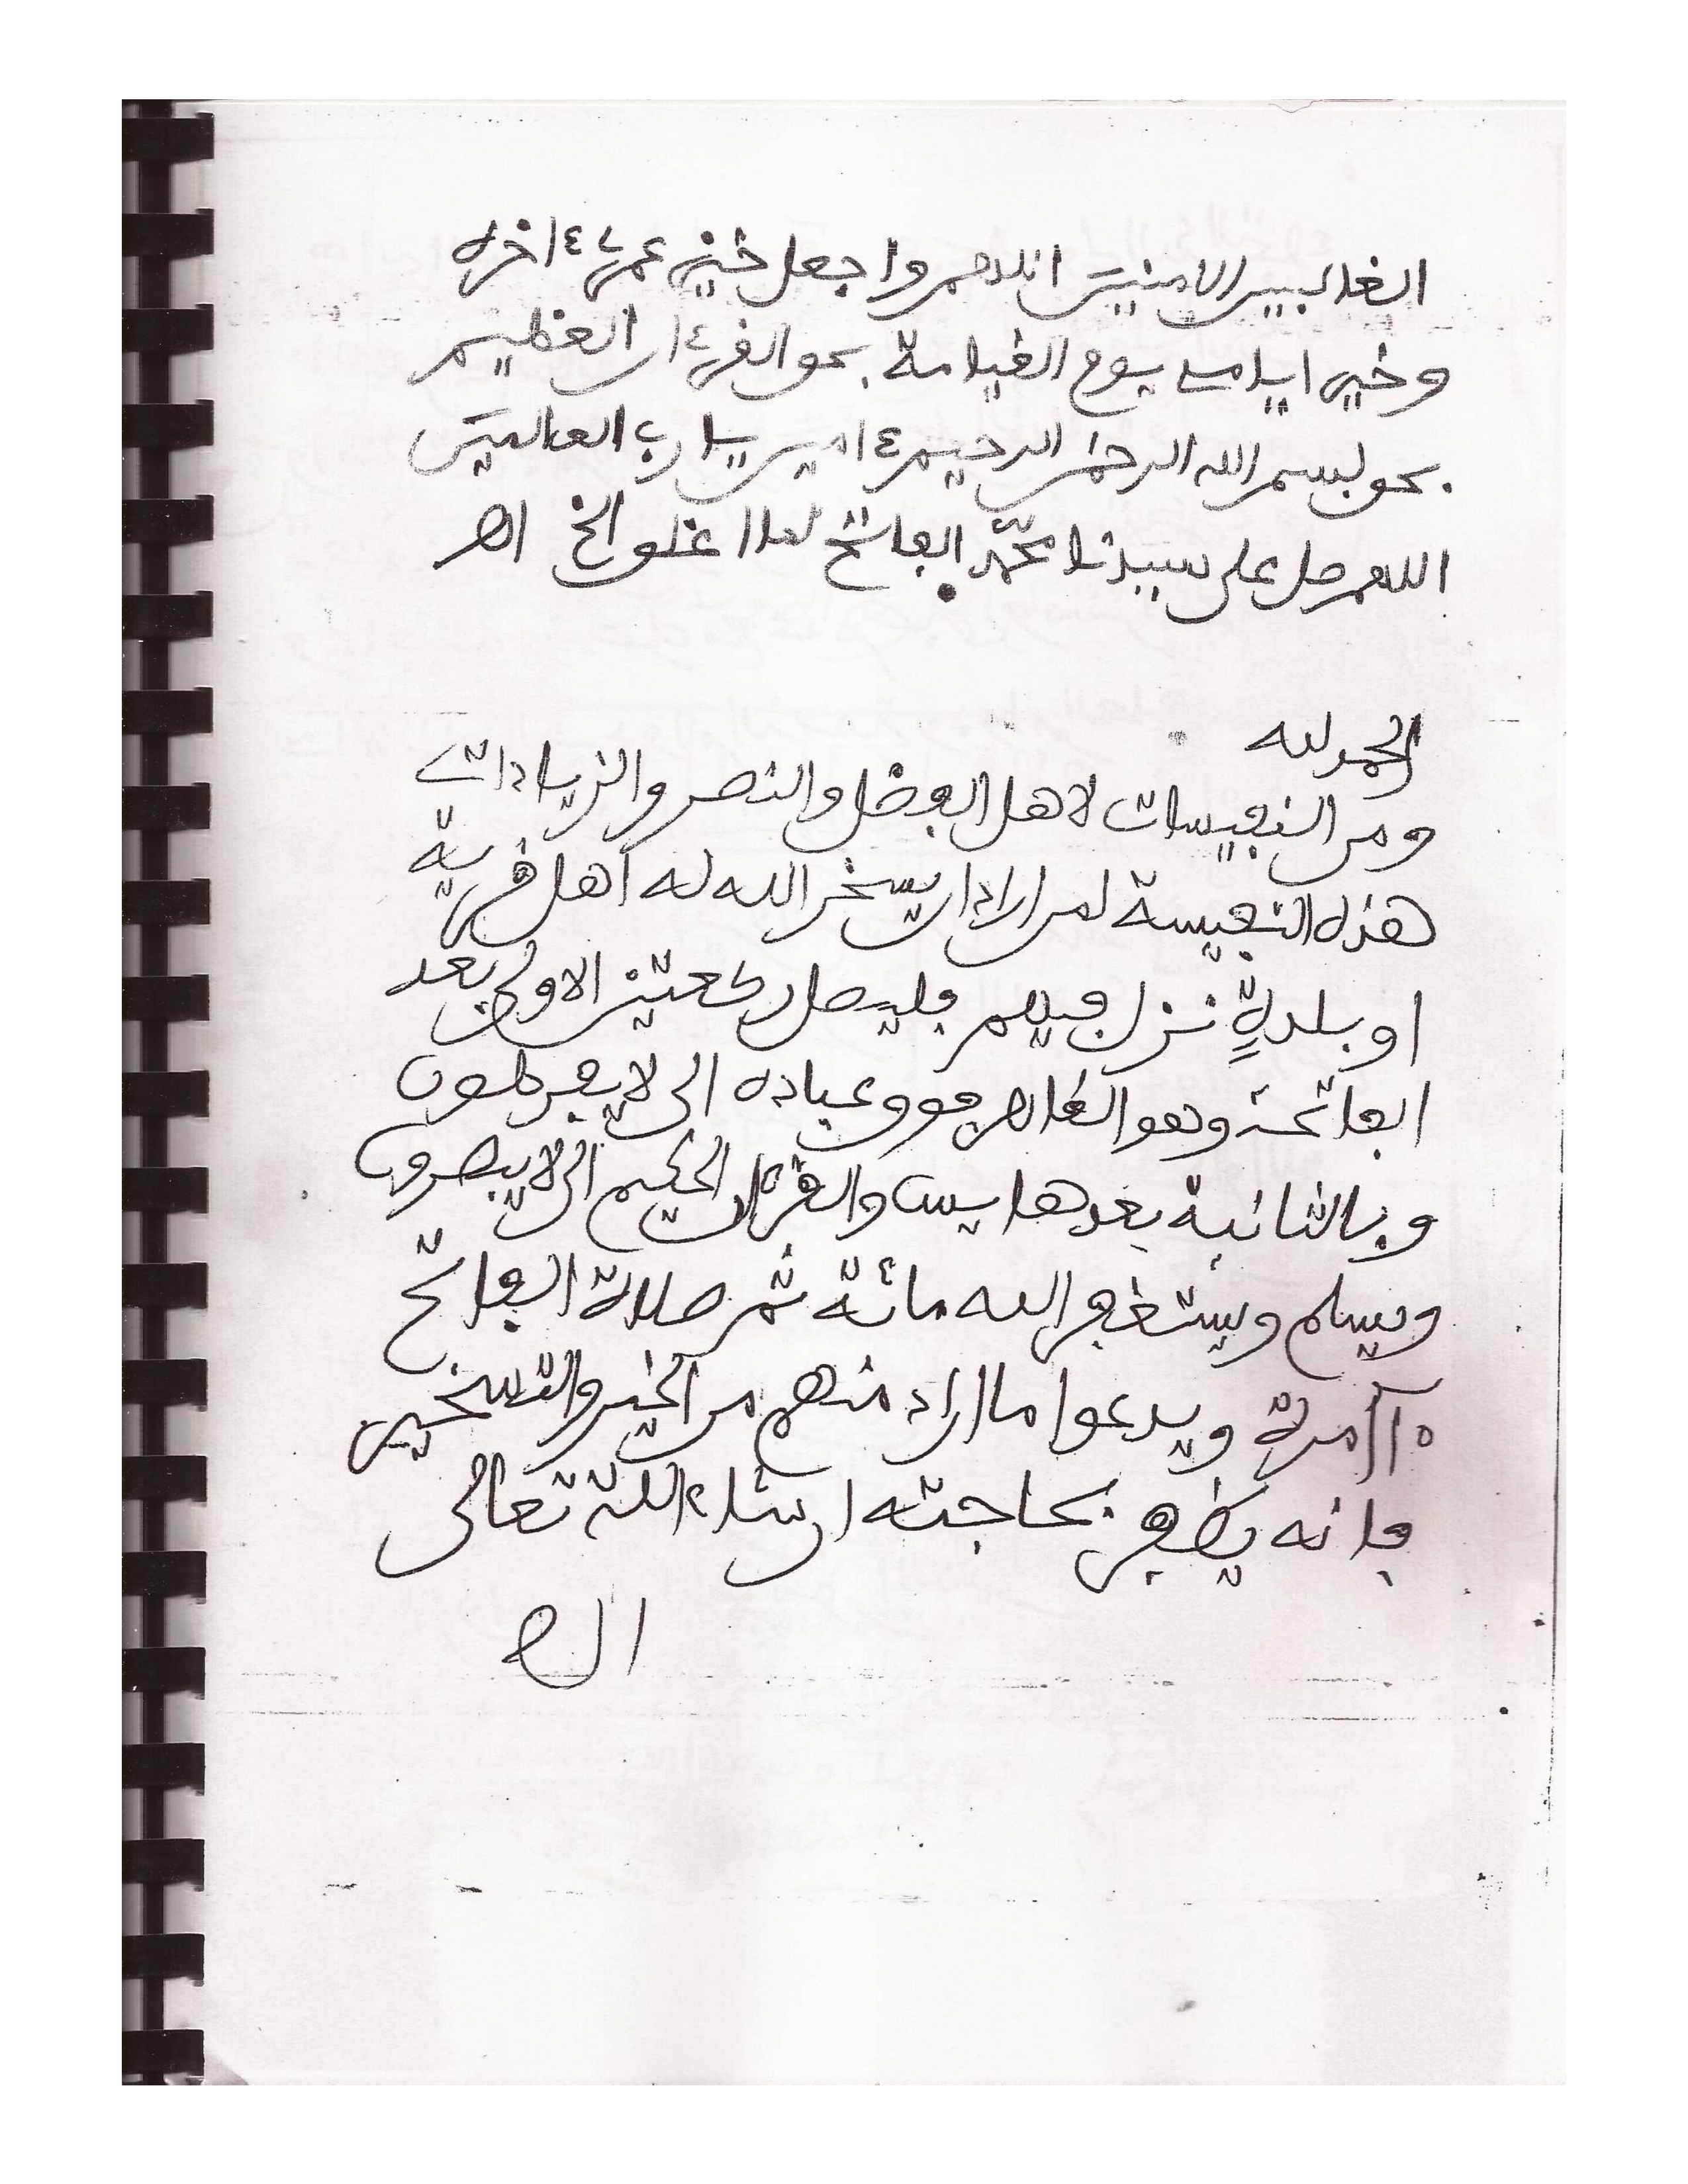 الغالبين الامنين اللهم واجعل خير عمري ءاخره
وخير ايامي يوم القيامة بحق القرءان العظيم
بحق بسم الله الرحمن الرحيم ءامين يا رب العالمين
اللهم صل على سيدنا محمد الفاتح لما اغلق الخ اهـ
الحمد لله
ومن النفيسات لاهل الفضل والنصر والزيادات
هذه النفيسة لمن اراد ان يسخر الله له اهل قرية
او بلدةٍ نزل فيهم فليصل ركعتين الاولى بعد
الفاتحة وهو القاهر فوق عباده الى لا يفرطون
وبالثانية بعدها يس والقرءان الحكيم الى لا يبصرون
ويسلم ويستغفر الله مائة ثم صلاة الفاتح
مرة ويدعوا ما اراد منهم من الخير والتسخير
فانه يظفر بحاجته ان شاء الله تعالى
اهـ